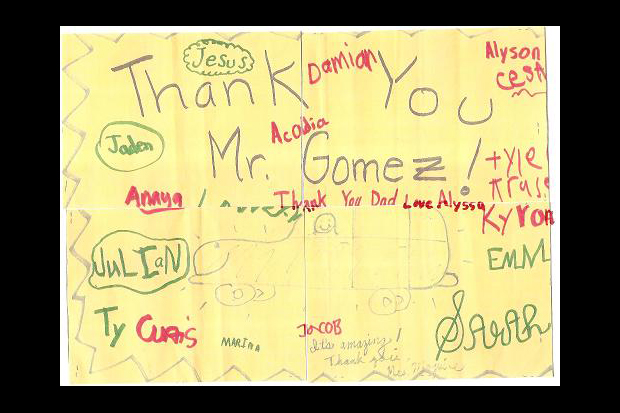 Jesus
Thank You
Damian
Alyson
Acadia
Jaden
Mr. Gomez!
tyle
Kruse
Anaya
Thank You Dad Love Alyssa
Kyron
JuLIaN
EMM
Ty Curtis
MARINA
JACOB
Sarah
It's amazing!
Thank you